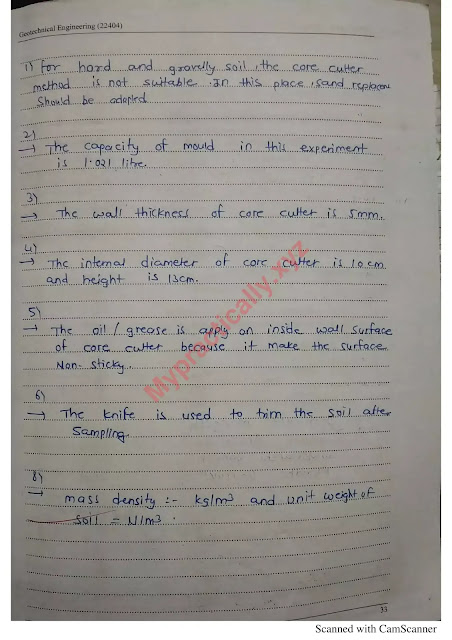 Geotechnical Engineering (22404)
1) For hard and gravelly soil, the core cutter
method is not suitable. In this place, sand replacem
should be adopted.
2)
→ The capacity of mould in this experiment
is 1.021 litre.
3)
→ The wall thickness of core cutter is 5mm.
4)
→ The internal diameter of core cutter is 10cm
and height is 13cm.
5)
→ The oil / grease is apply on inside wall surface
of core cutter because it make the surface
Non-sticky.
6)
→ The knife is used to trim the soil after
Sampling.
8)
→ mass density :- kg/m³ and unit weight of
soil = N/m³.
33
Mypractically.xyz
Scanned with CamScanner